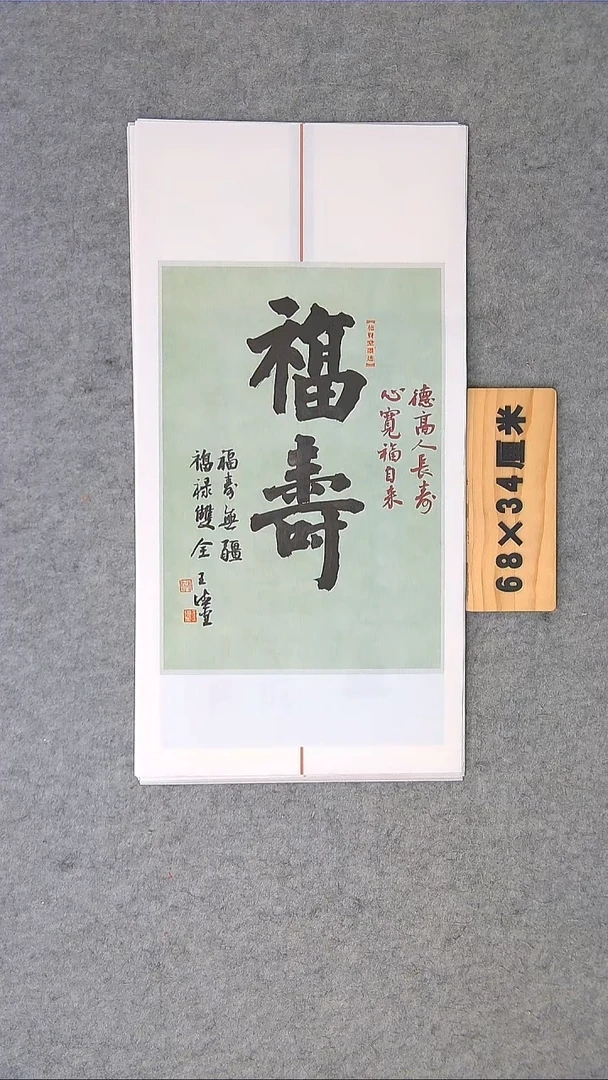 福壽
德高人長壽
心寬福自来
福壽無疆
福禄雙全
68×34厘米